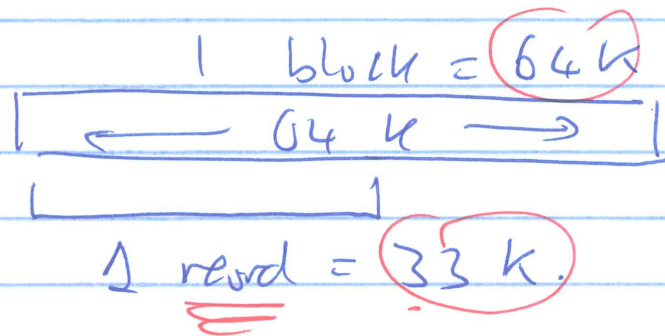 1 block = 64 K
← 64 K →
1 record = 33 K.